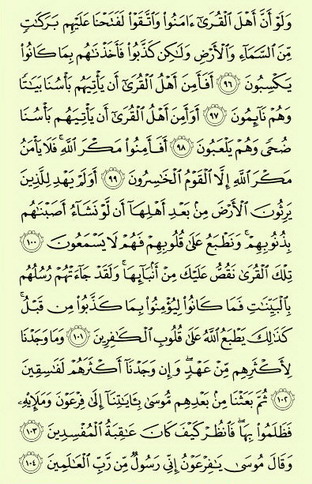 وَلَوْ أَنَّ أَهْلَ ٱلْقُرَىٰٓ ءَامَنُوا۟ وَٱتَّقَوْا۟ لَفَتَحْنَا عَلَيْهِم بَرَكَٰتٍ
مِّنَ ٱلسَّمَآءِ وَٱلْأَرْضِ وَلَٰكِن كَذَّبُوا۟ فَأَخَذْنَٰهُم بِمَا كَانُوا۟
يَكْسِبُونَ ٩٦ أَفَأَمِنَ أَهْلُ ٱلْقُرَىٰٓ أَن يَأْتِيَهُم بَأْسُنَا بَيَٰتًا
وَهُمْ نَآئِمُونَ ٩٧ أَوَأَمِنَ أَهْلُ ٱلْقُرَىٰٓ أَن يَأْتِيَهُم بَأْسُنَا
ضُحًى وَهُمْ يَلْعَبُونَ ٩٨ أَفَأَمِنُوا۟ مَكْرَ ٱللَّهِ ۚ فَلَا يَأْمَنُ
مَكْرَ ٱللَّهِ إِلَّا ٱلْقَوْمُ ٱلْخَٰسِرُونَ ٩٩ أَوَلَمْ يَهْدِ لِلَّذِينَ
يَرِثُونَ ٱلْأَرْضَ مِنۢ بَعْدِ أَهْلِهَآ أَن لَّوْ نَشَآءُ أَصَبْنَٰهُم
بِذُنُوبِهِمْ ۚ وَنَطْبَعُ عَلَىٰ قُلُوبِهِمْ فَهُمْ لَا يَسْمَعُونَ ١٠٠
تِلْكَ ٱلْقُرَىٰ نَقُصُّ عَلَيْكَ مِنْ أَنۢبَآئِهَا ۚ وَلَقَدْ جَآءَتْهُمْ رُسُلُهُم
بِٱلْبَيِّنَٰتِ فَمَا كَانُوا۟ لِيُؤْمِنُوا۟ بِمَا كَذَّبُوا۟ مِن قَبْلُ ۚ
كَذَٰلِكَ يَطْبَعُ ٱللَّهُ عَلَىٰ قُلُوبِ ٱلْكَٰفِرِينَ ١٠١ وَمَا وَجَدْنَا
لِأَكْثَرِهِم مِّنْ عَهْدٍ ۖ وَإِن وَجَدْنَآ أَكْثَرَهُمْ لَفَٰسِقِينَ
١٠٢ ثُمَّ بَعَثْنَا مِنۢ بَعْدِهِم مُّوسَىٰ بِـَٔايَٰتِنَآ إِلَىٰ فِرْعَوْنَ وَمَلَإِي۟هِۦ
فَظَلَمُوا۟ بِهَا ۖ فَٱنظُرْ كَيْفَ كَانَ عَٰقِبَةُ ٱلْمُفْسِدِينَ
١٠٣ وَقَالَ مُوسَىٰ يَٰفِرْعَوْنُ إِنِّى رَسُولٌ مِّن رَّبِّ ٱلْعَٰلَمِينَ ١٠٤